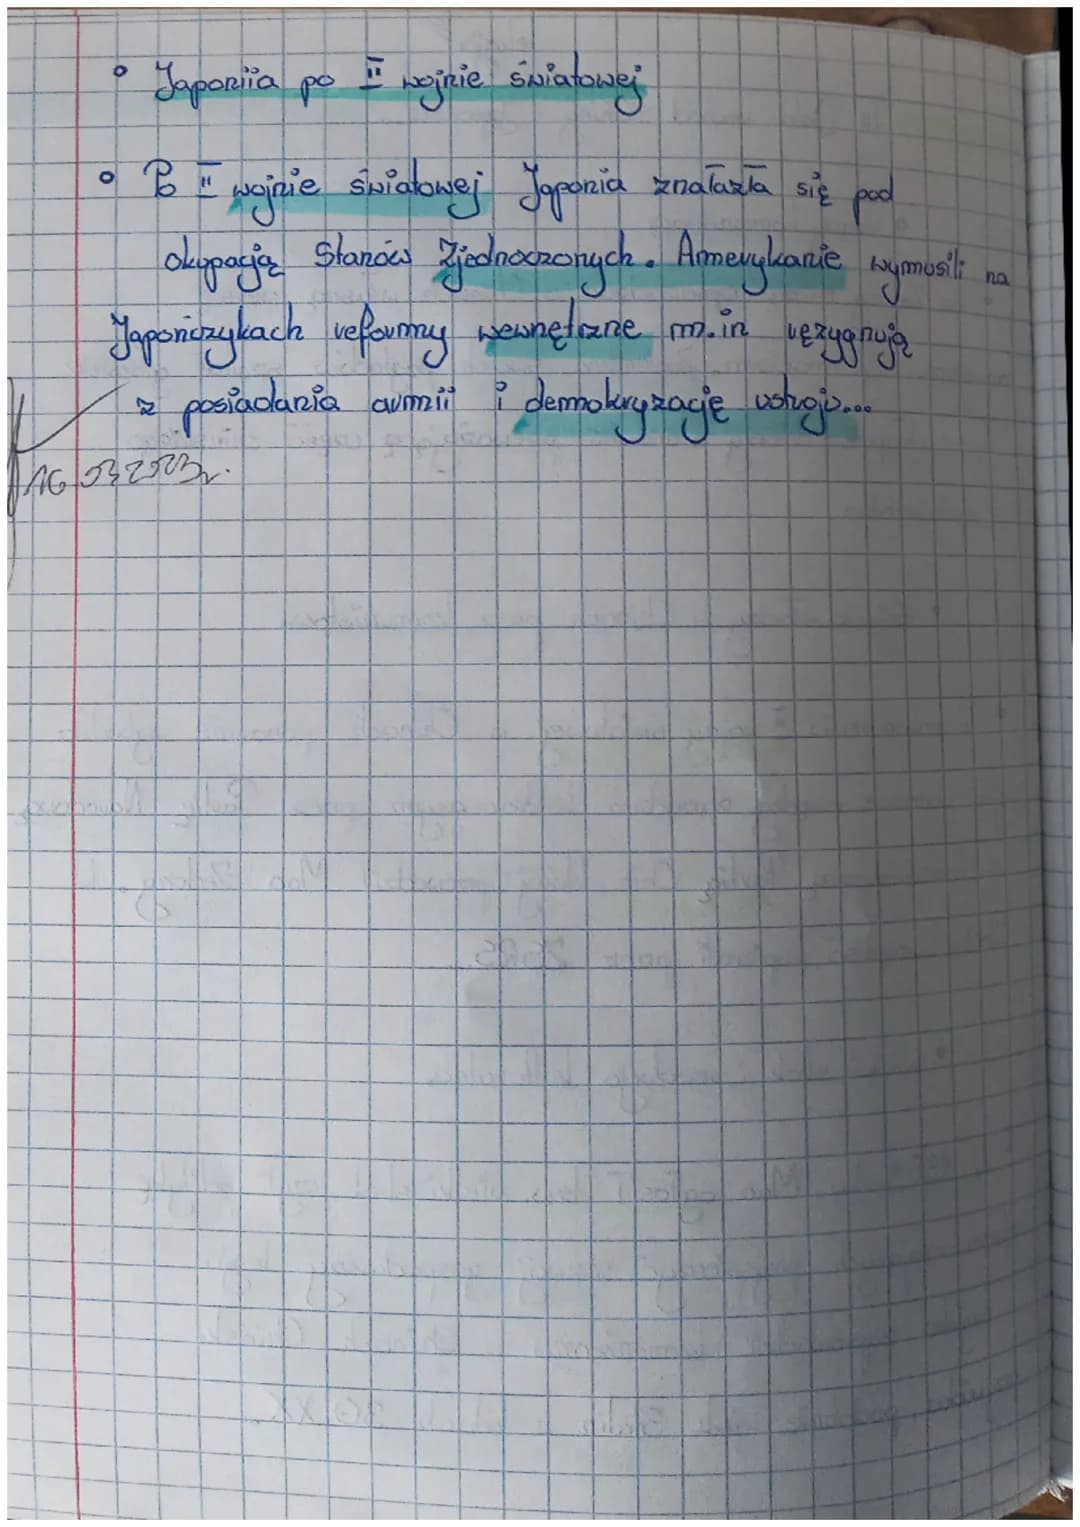 • Japoniia po II wojnie światowej
• Po II wojnie światowej Japonia znalazła się pod
okupacją Stanów Zjednoczonych. Amerykanie wymusili na
Japończykach reformy wewnętrzne m.in rezygnują
z posiadania armii i demokryzację ustroju...
16 03 2023r.